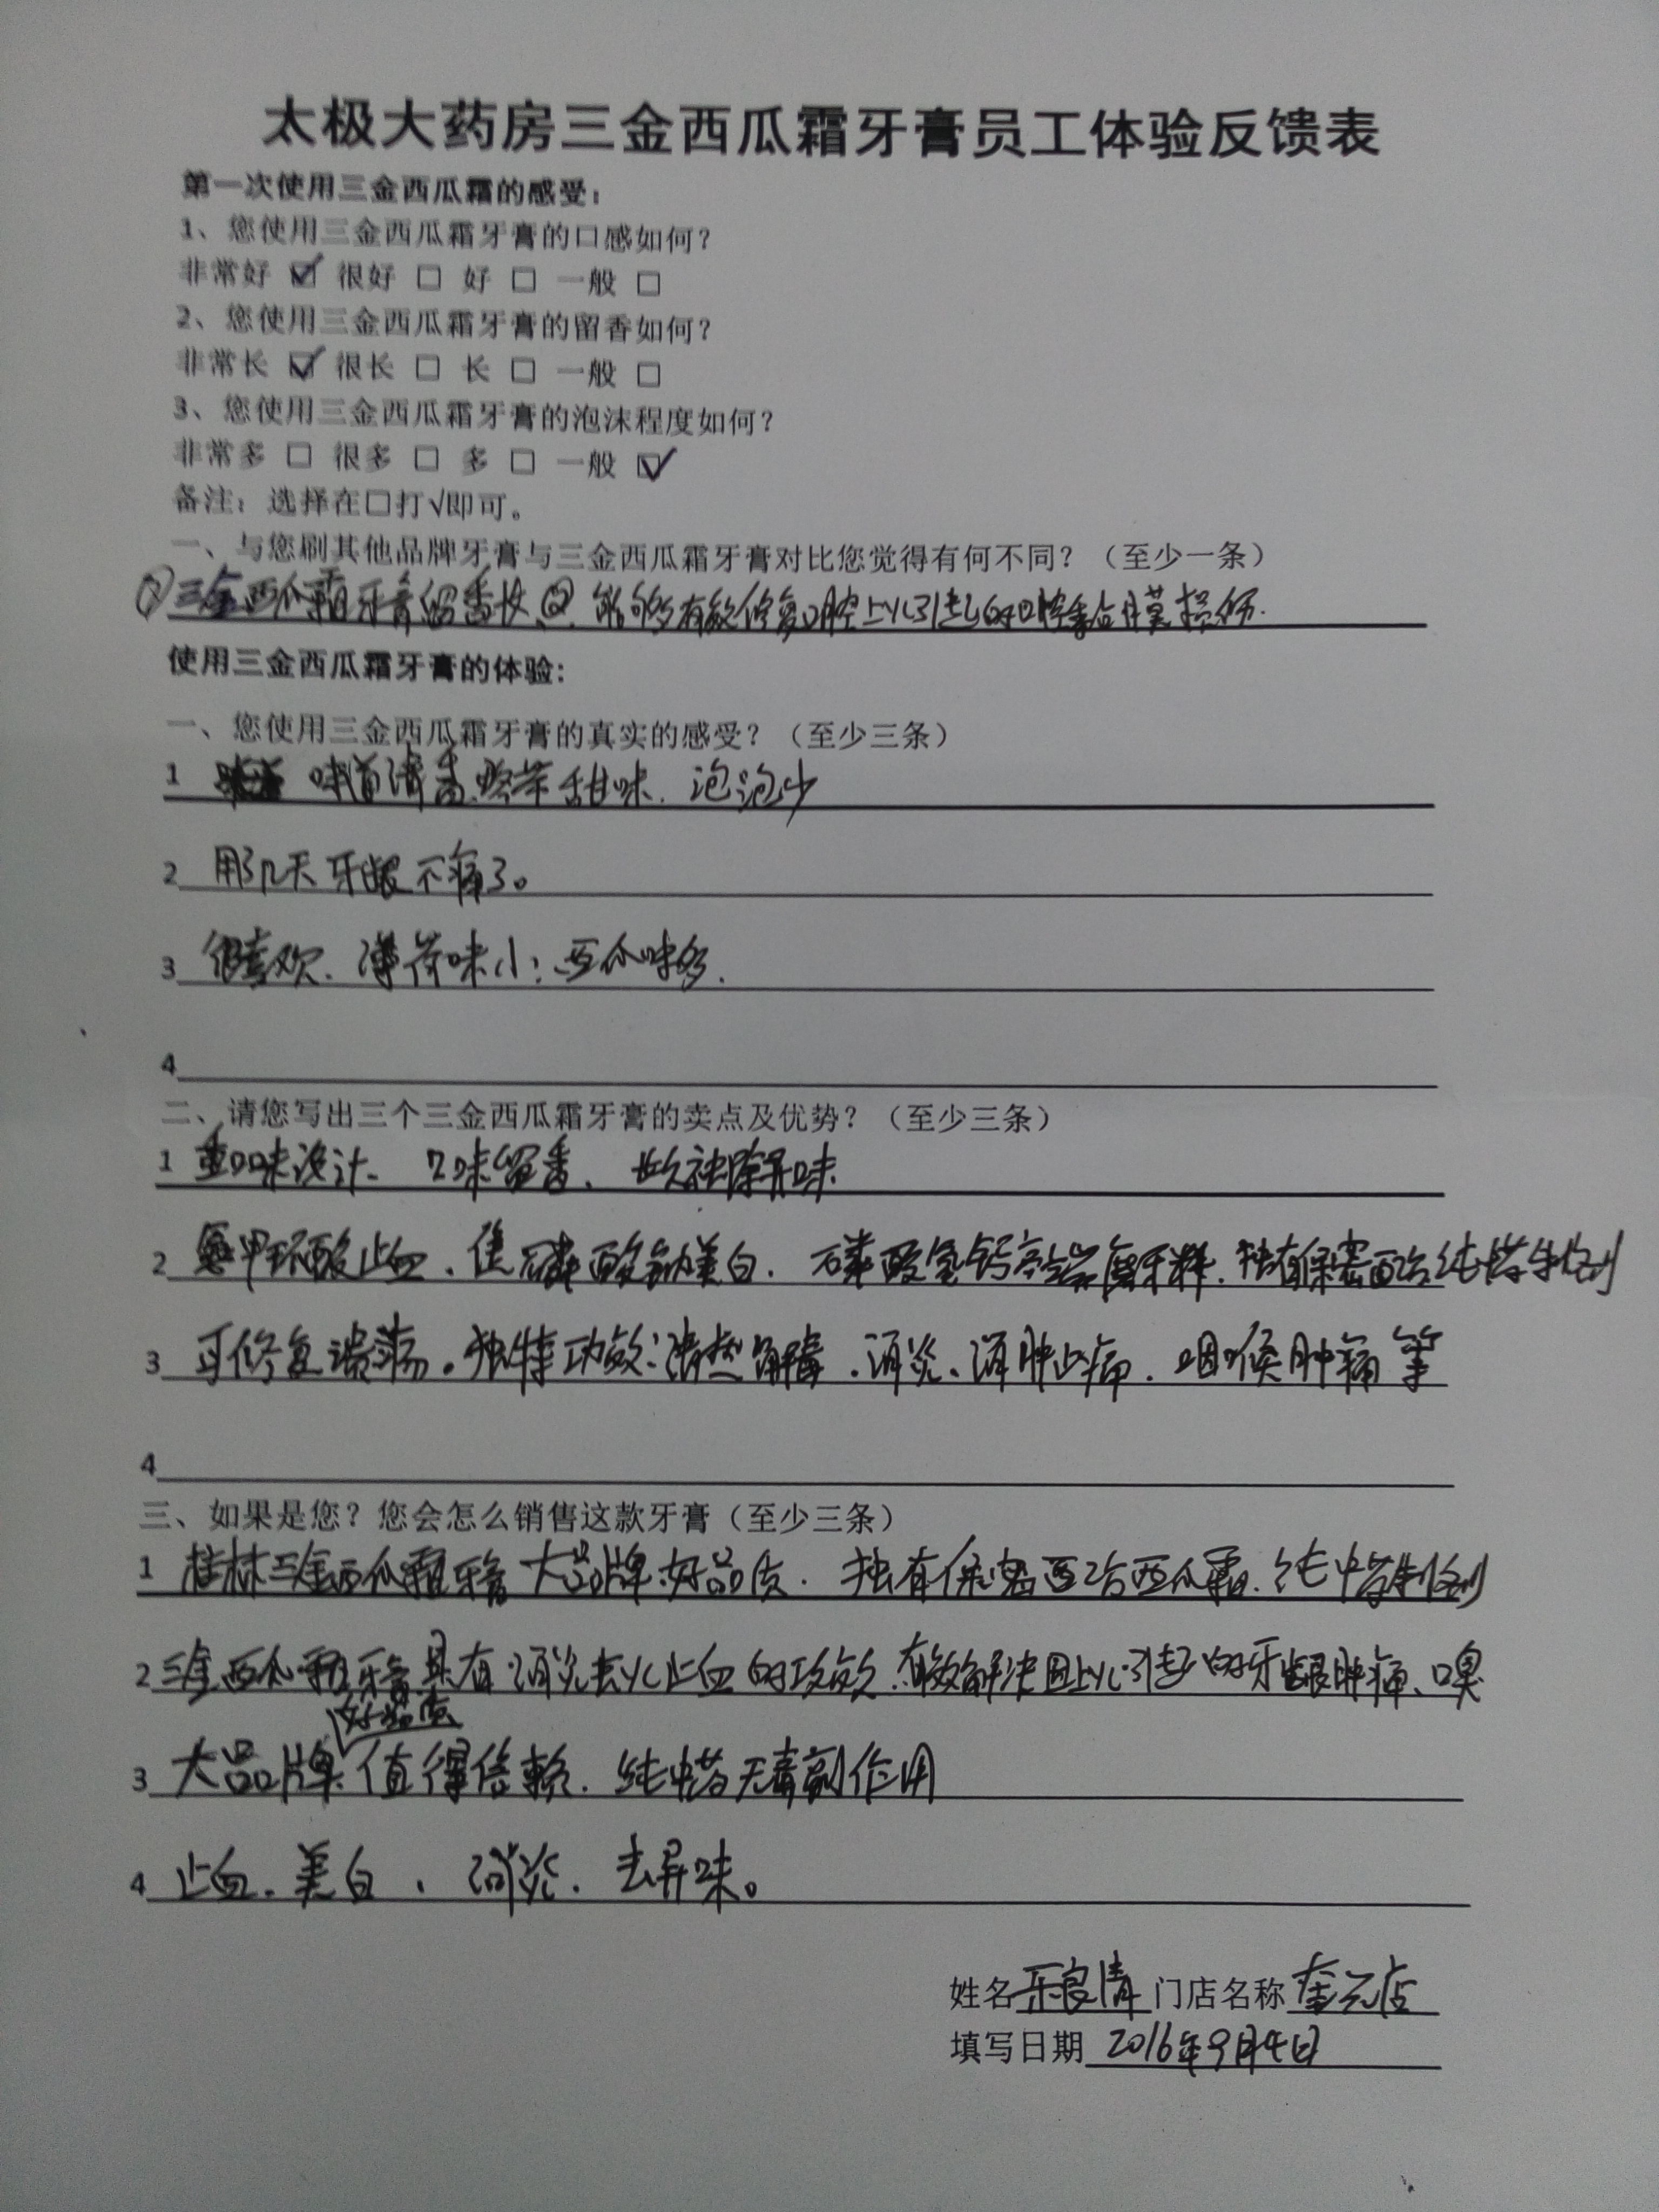 太极大药房三金西瓜霜牙膏员工体验反馈表
第一次使用三金西瓜霜的感受：
1、您使用三金西瓜霜牙膏的口感如何？
非常好 ☑ 很好 □ 好 □ 一般 □
2、您使用三金西瓜霜牙膏的留香如何？
非常长 ☑ 很长 □ 长 □ 一般 □
3、您使用三金西瓜霜牙膏的泡沫程度如何？
非常多 □ 很多 □ 多 □ 一般 ☑
备注：选择在□打√即可。
一、与您刷其他品牌牙膏与三金西瓜霜牙膏对比您觉得有何不同？（至少一条）
① 三金西瓜霜牙膏留香长 ② 能够有效修复口腔上火引起的口腔黏膜损伤.
使用三金西瓜霜牙膏的体验：
一、您使用三金西瓜霜牙膏的真实的感受？（至少三条）
1 味道清香 甜味. 泡泡少
2 用了几天牙龈不痛了。
3 很喜欢. 薄荷味小; 西瓜味多.
4
二、请您写出三个三金西瓜霜牙膏的卖点及优势？（至少三条）
1 重口味设计、口味留香、长效祛除异味
2 氨甲环酸止血. 焦磷酸钠美白. 磷酸氢钙高端磨牙料. 独有保密配方 纯中药制剂
3 可修复溃疡。独特功效：清热解毒.消炎、消肿止痛. 咽喉肿痛等
4
三、如果是您？您会怎么销售这款牙膏（至少三条）
1 桂林三金西瓜霜牙膏 大品牌.好品质. 独有保密配方西瓜霜. 纯中药制剂
2 三金西瓜霜牙膏具有消炎去火止血的功效.有效解决因上火引起的牙龈肿痛、口臭
好品质
3 大品牌、值得信赖. 纯中药无毒副作用
4 止血. 美白. 消炎. 去异味。
姓名 乐良清 门店名称 奎元店
填写日期 2016年9月4日